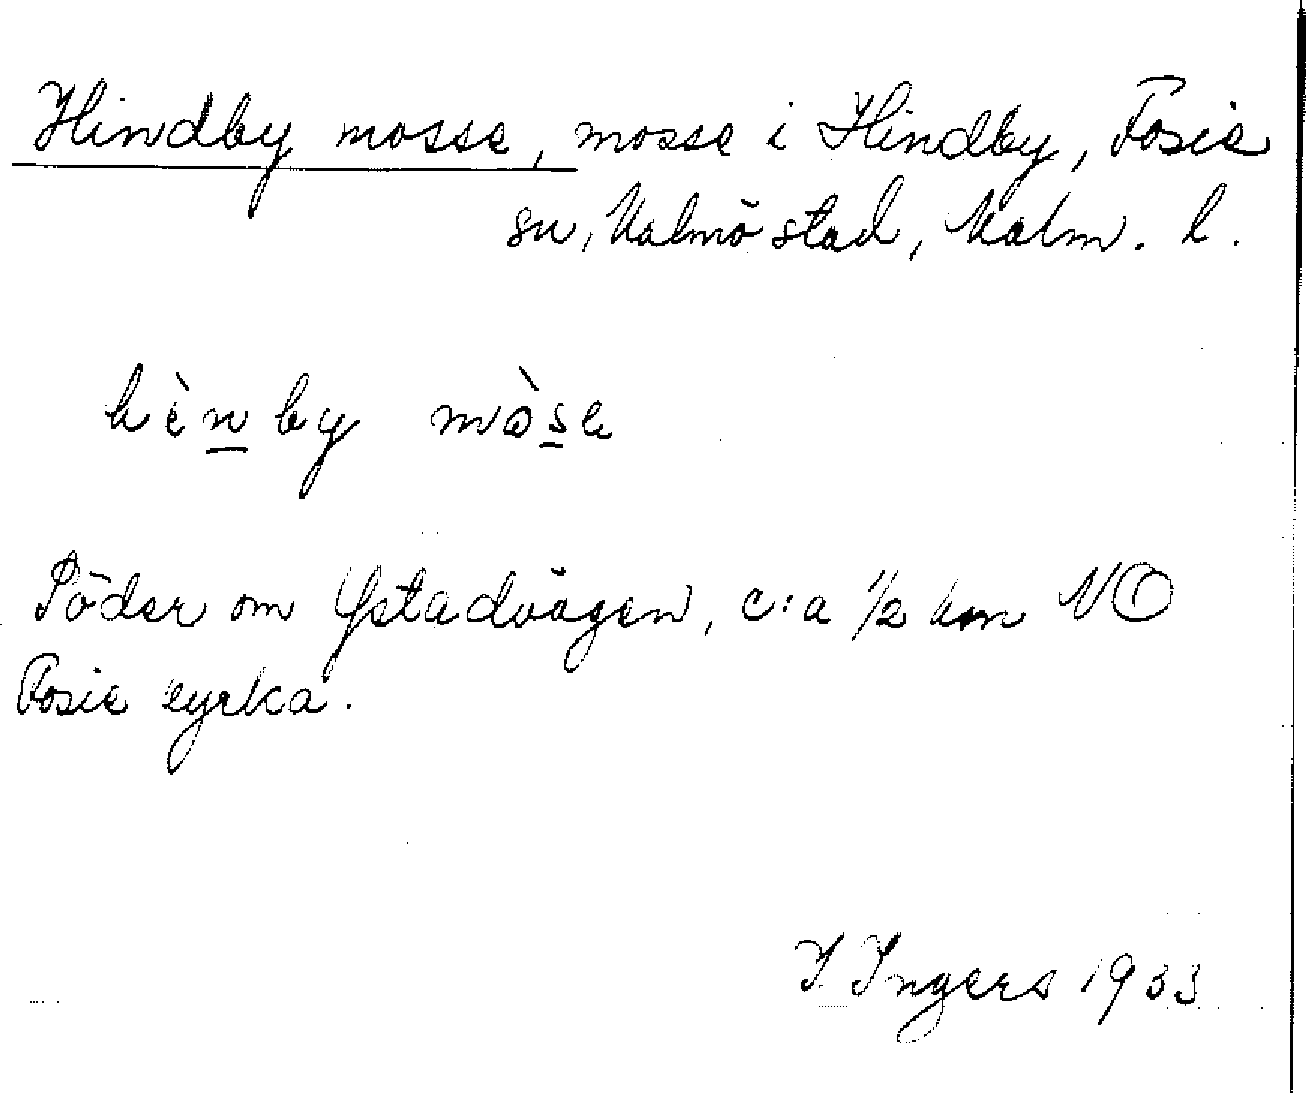 Hindby mosse, mosse i Hindby, Fosie
sn, Malmö stad, Malm. l.
hènby mòse
Söder om Ystadvägen, c:a 1/2 km NO
Fosie kyrka.
I. Ingers 1933